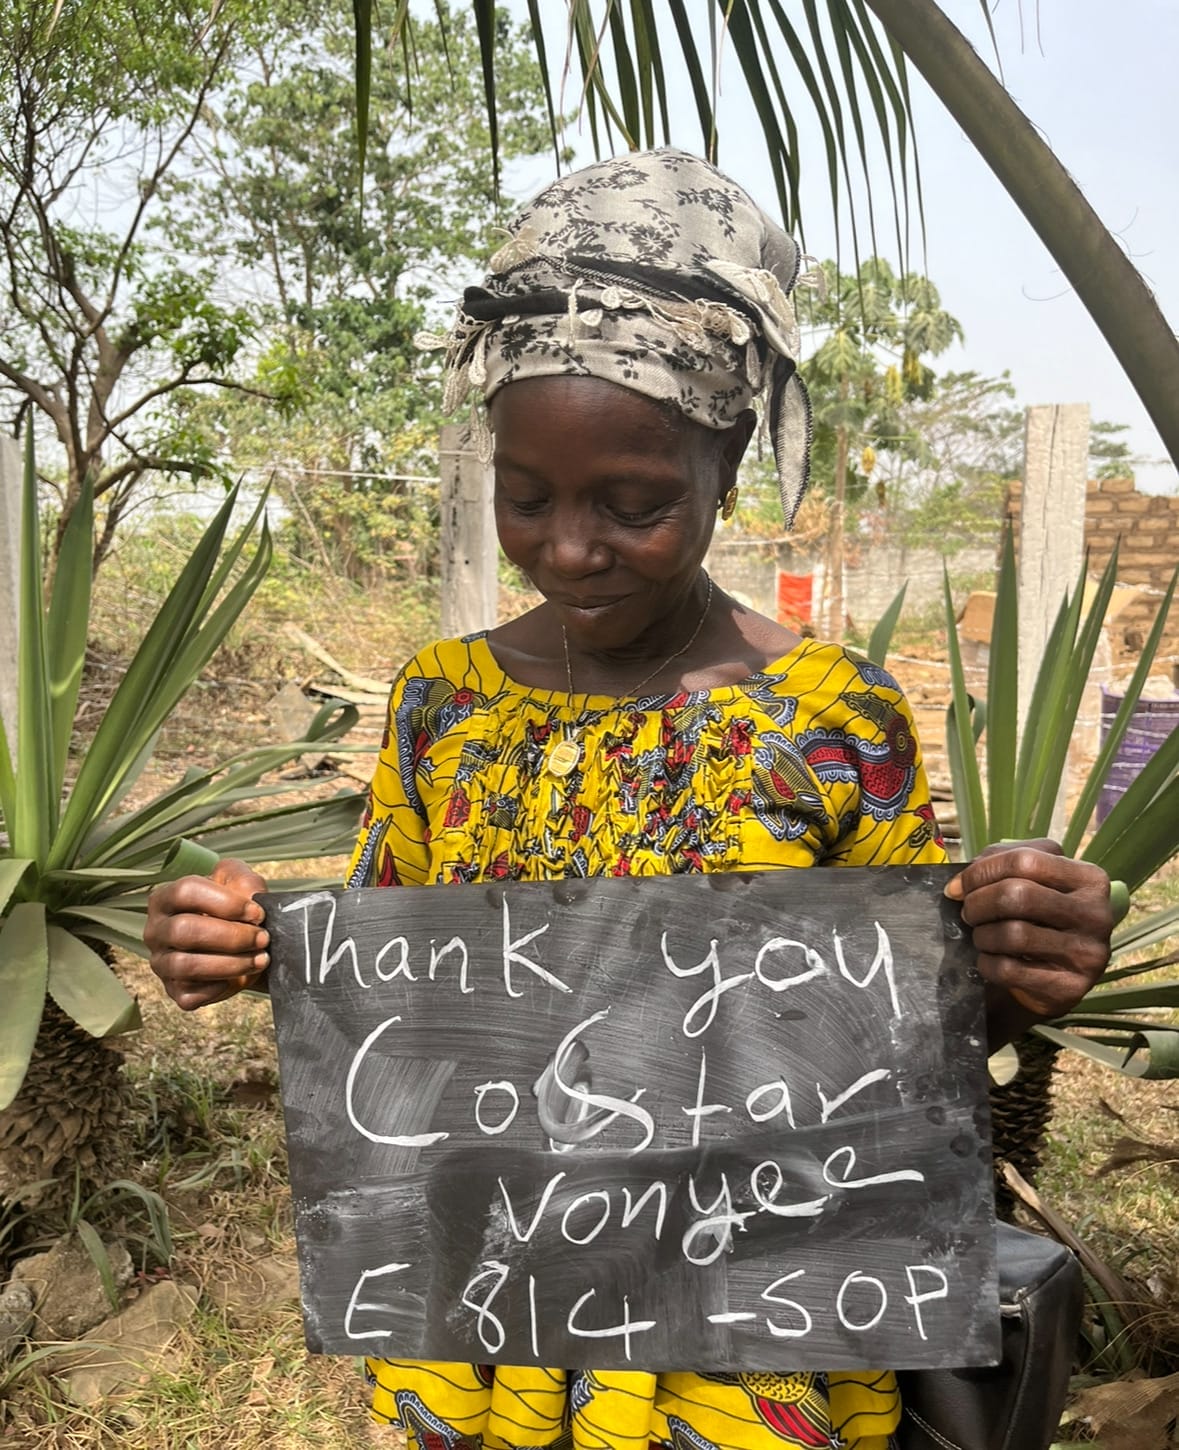 Thank you
CoStar
vonyee
E 814 -SOP